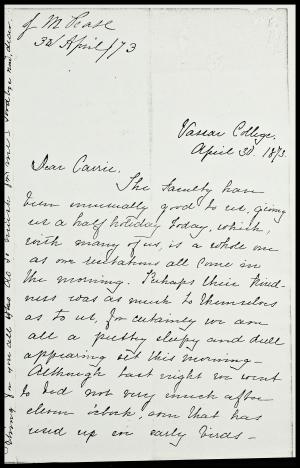 of M Pease
30 April/73
Vassar College.
April 30. 1873.
Dear Carrie.
The Faculty have
been unusually good to us, giving
us a half holiday today, which,
with many of us, is a whole one
as our recitations all come in
the morning. Perhaps their kind-
ness was as much to themselves
as to us, for certainly we are
all a pretty sleepy and dull
appearing set this morning—
Although last night we went
to bed not very much after
eleven o'clock, even that has
used up we early birds—
for you all who do so much for me— Goodbye now, dear